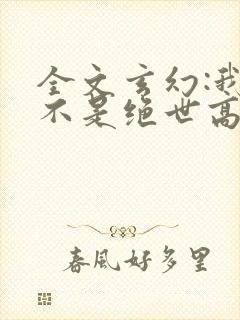 全文玄幻:我
不是绝世高
春風好多里